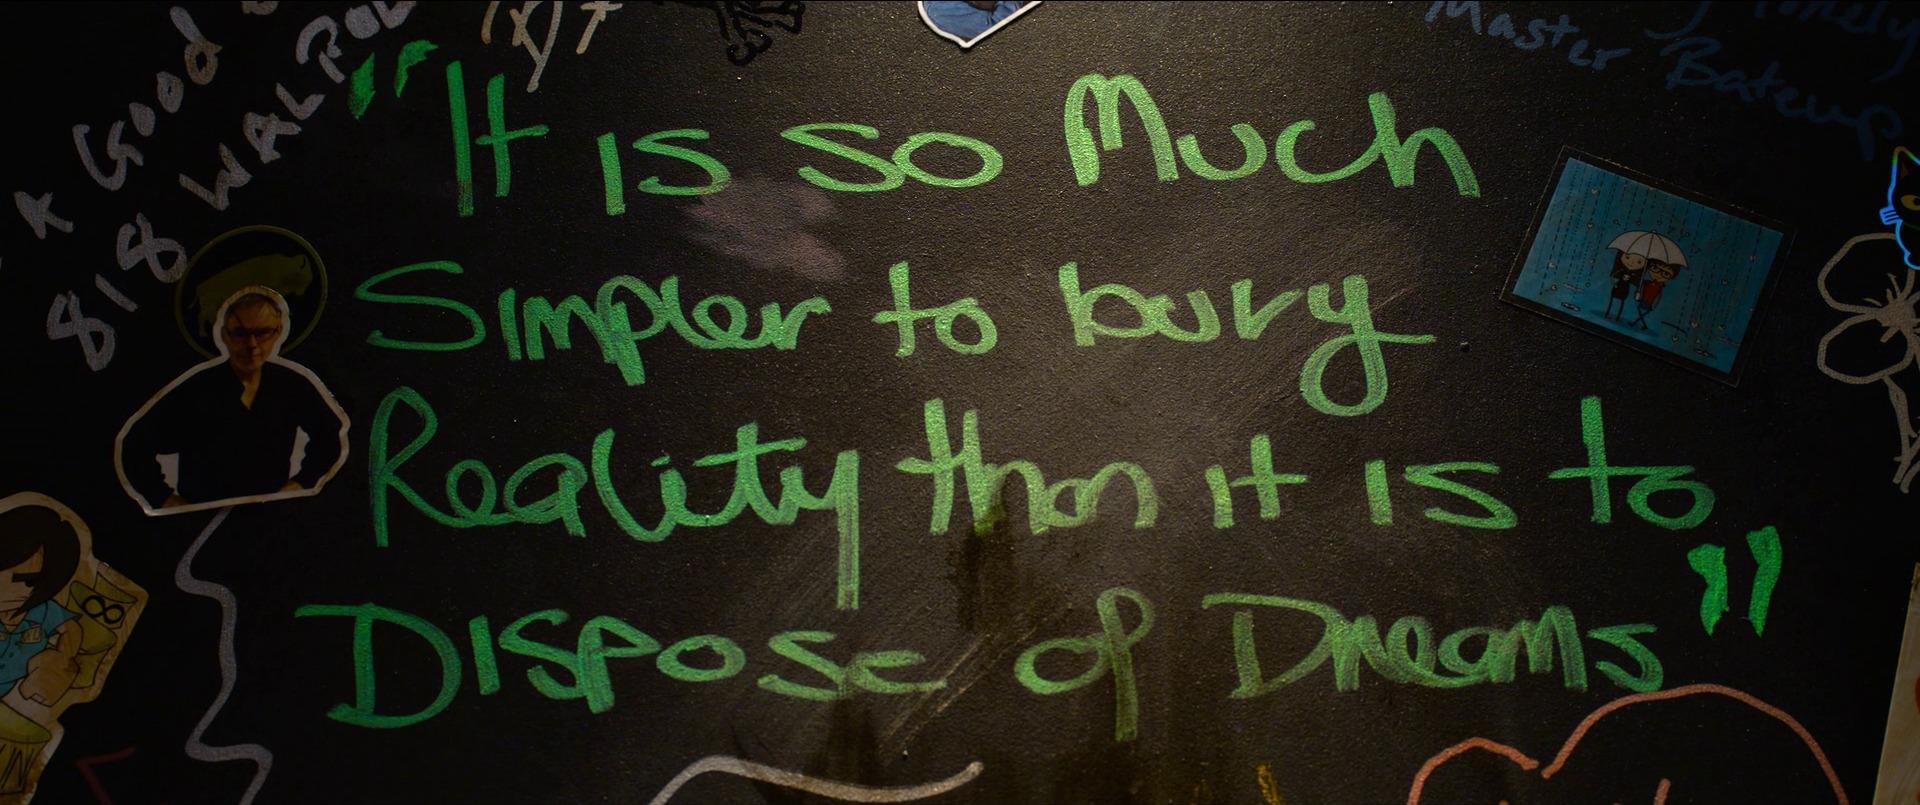 A Good
818 WALPOL
Master
Lonely
Bateup
"It is so Much
Simpler to bury
Reality than it is to
Dispose of Dreams"